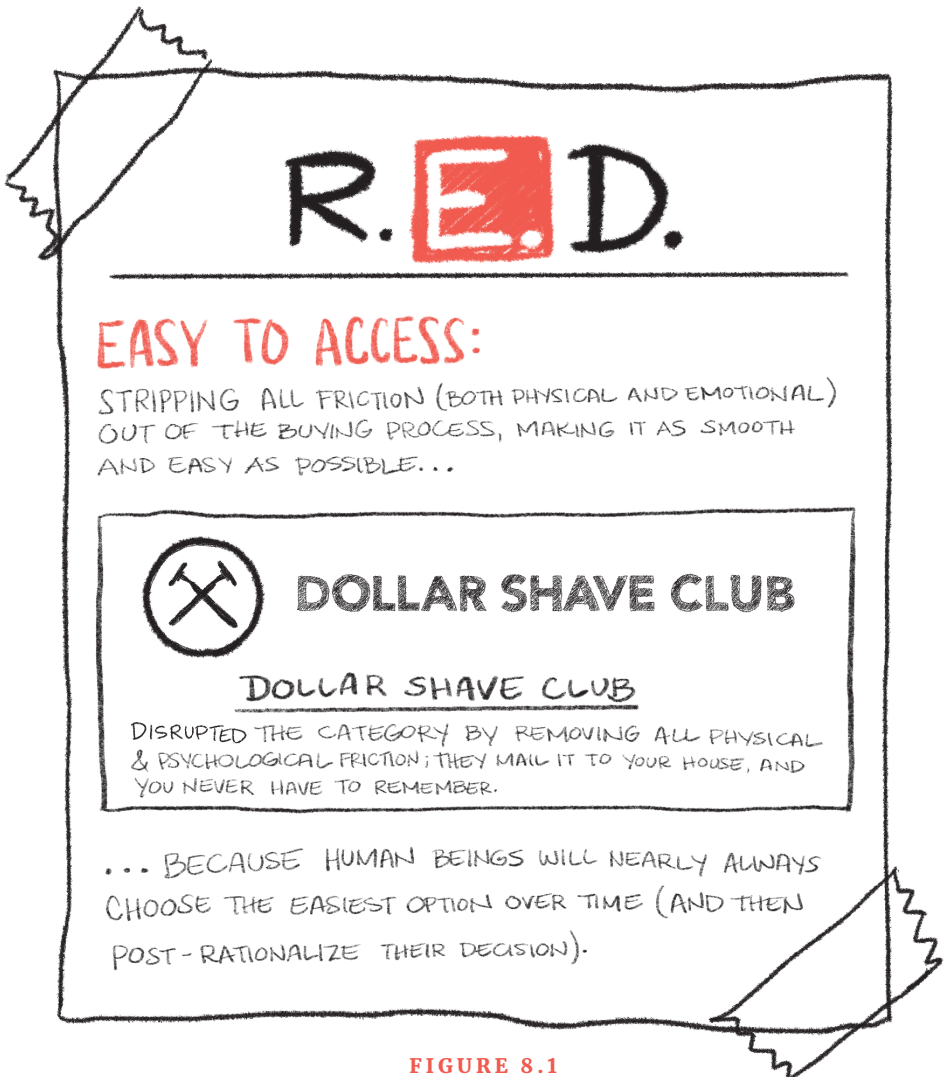 R.E.D.
EASY TO ACCESS:
STRIPPING ALL FRICTION (BOTH PHYSICAL AND EMOTIONAL)
OUT OF THE BUYING PROCESS, MAKING IT AS SMOOTH
AND EASY AS POSSIBLE...
DOLLAR SHAVE CLUB
DOLLAR SHAVE CLUB
DISRUPTED THE CATEGORY BY REMOVING ALL PHYSICAL
& PSYCHOLOGICAL FRICTION; THEY MAIL IT TO YOUR HOUSE, AND
YOU NEVER HAVE TO REMEMBER.
... BECAUSE HUMAN BEINGS WILL NEARLY ALWAYS
CHOOSE THE EASIEST OPTION OVER TIME (AND THEN
POST-RATIONALIZE THEIR DECISION).
FIGURE 8.1